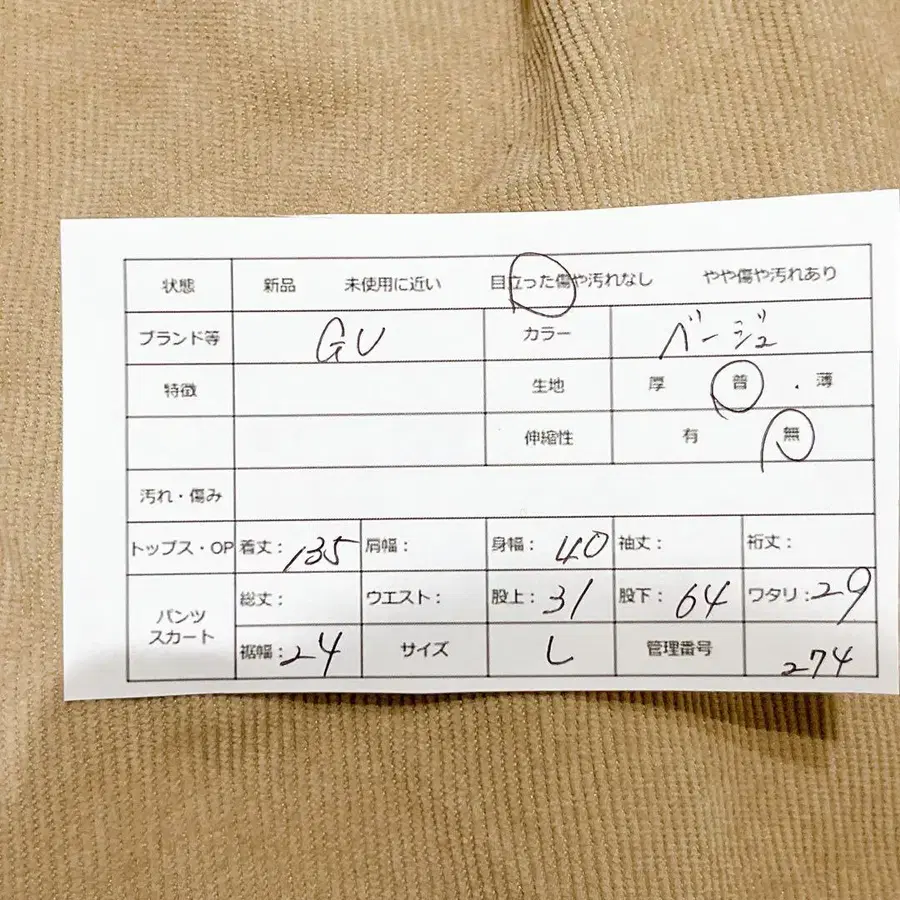 状態 新品 未使用に近い 目立った傷や汚れなし やや傷や汚れあり
ブランド等 GU カラー ベージュ
特徴 生地 厚 普 . 薄
伸縮性 有 無
汚れ・傷み
トップス・OP 着丈: 135 肩幅: 身幅: 40 袖丈: 裄丈:
パンツ スカート 総丈: ウエスト: 股上: 31 股下: 64 ワタリ: 29
裾幅: 24 サイズ L 管理番号 274